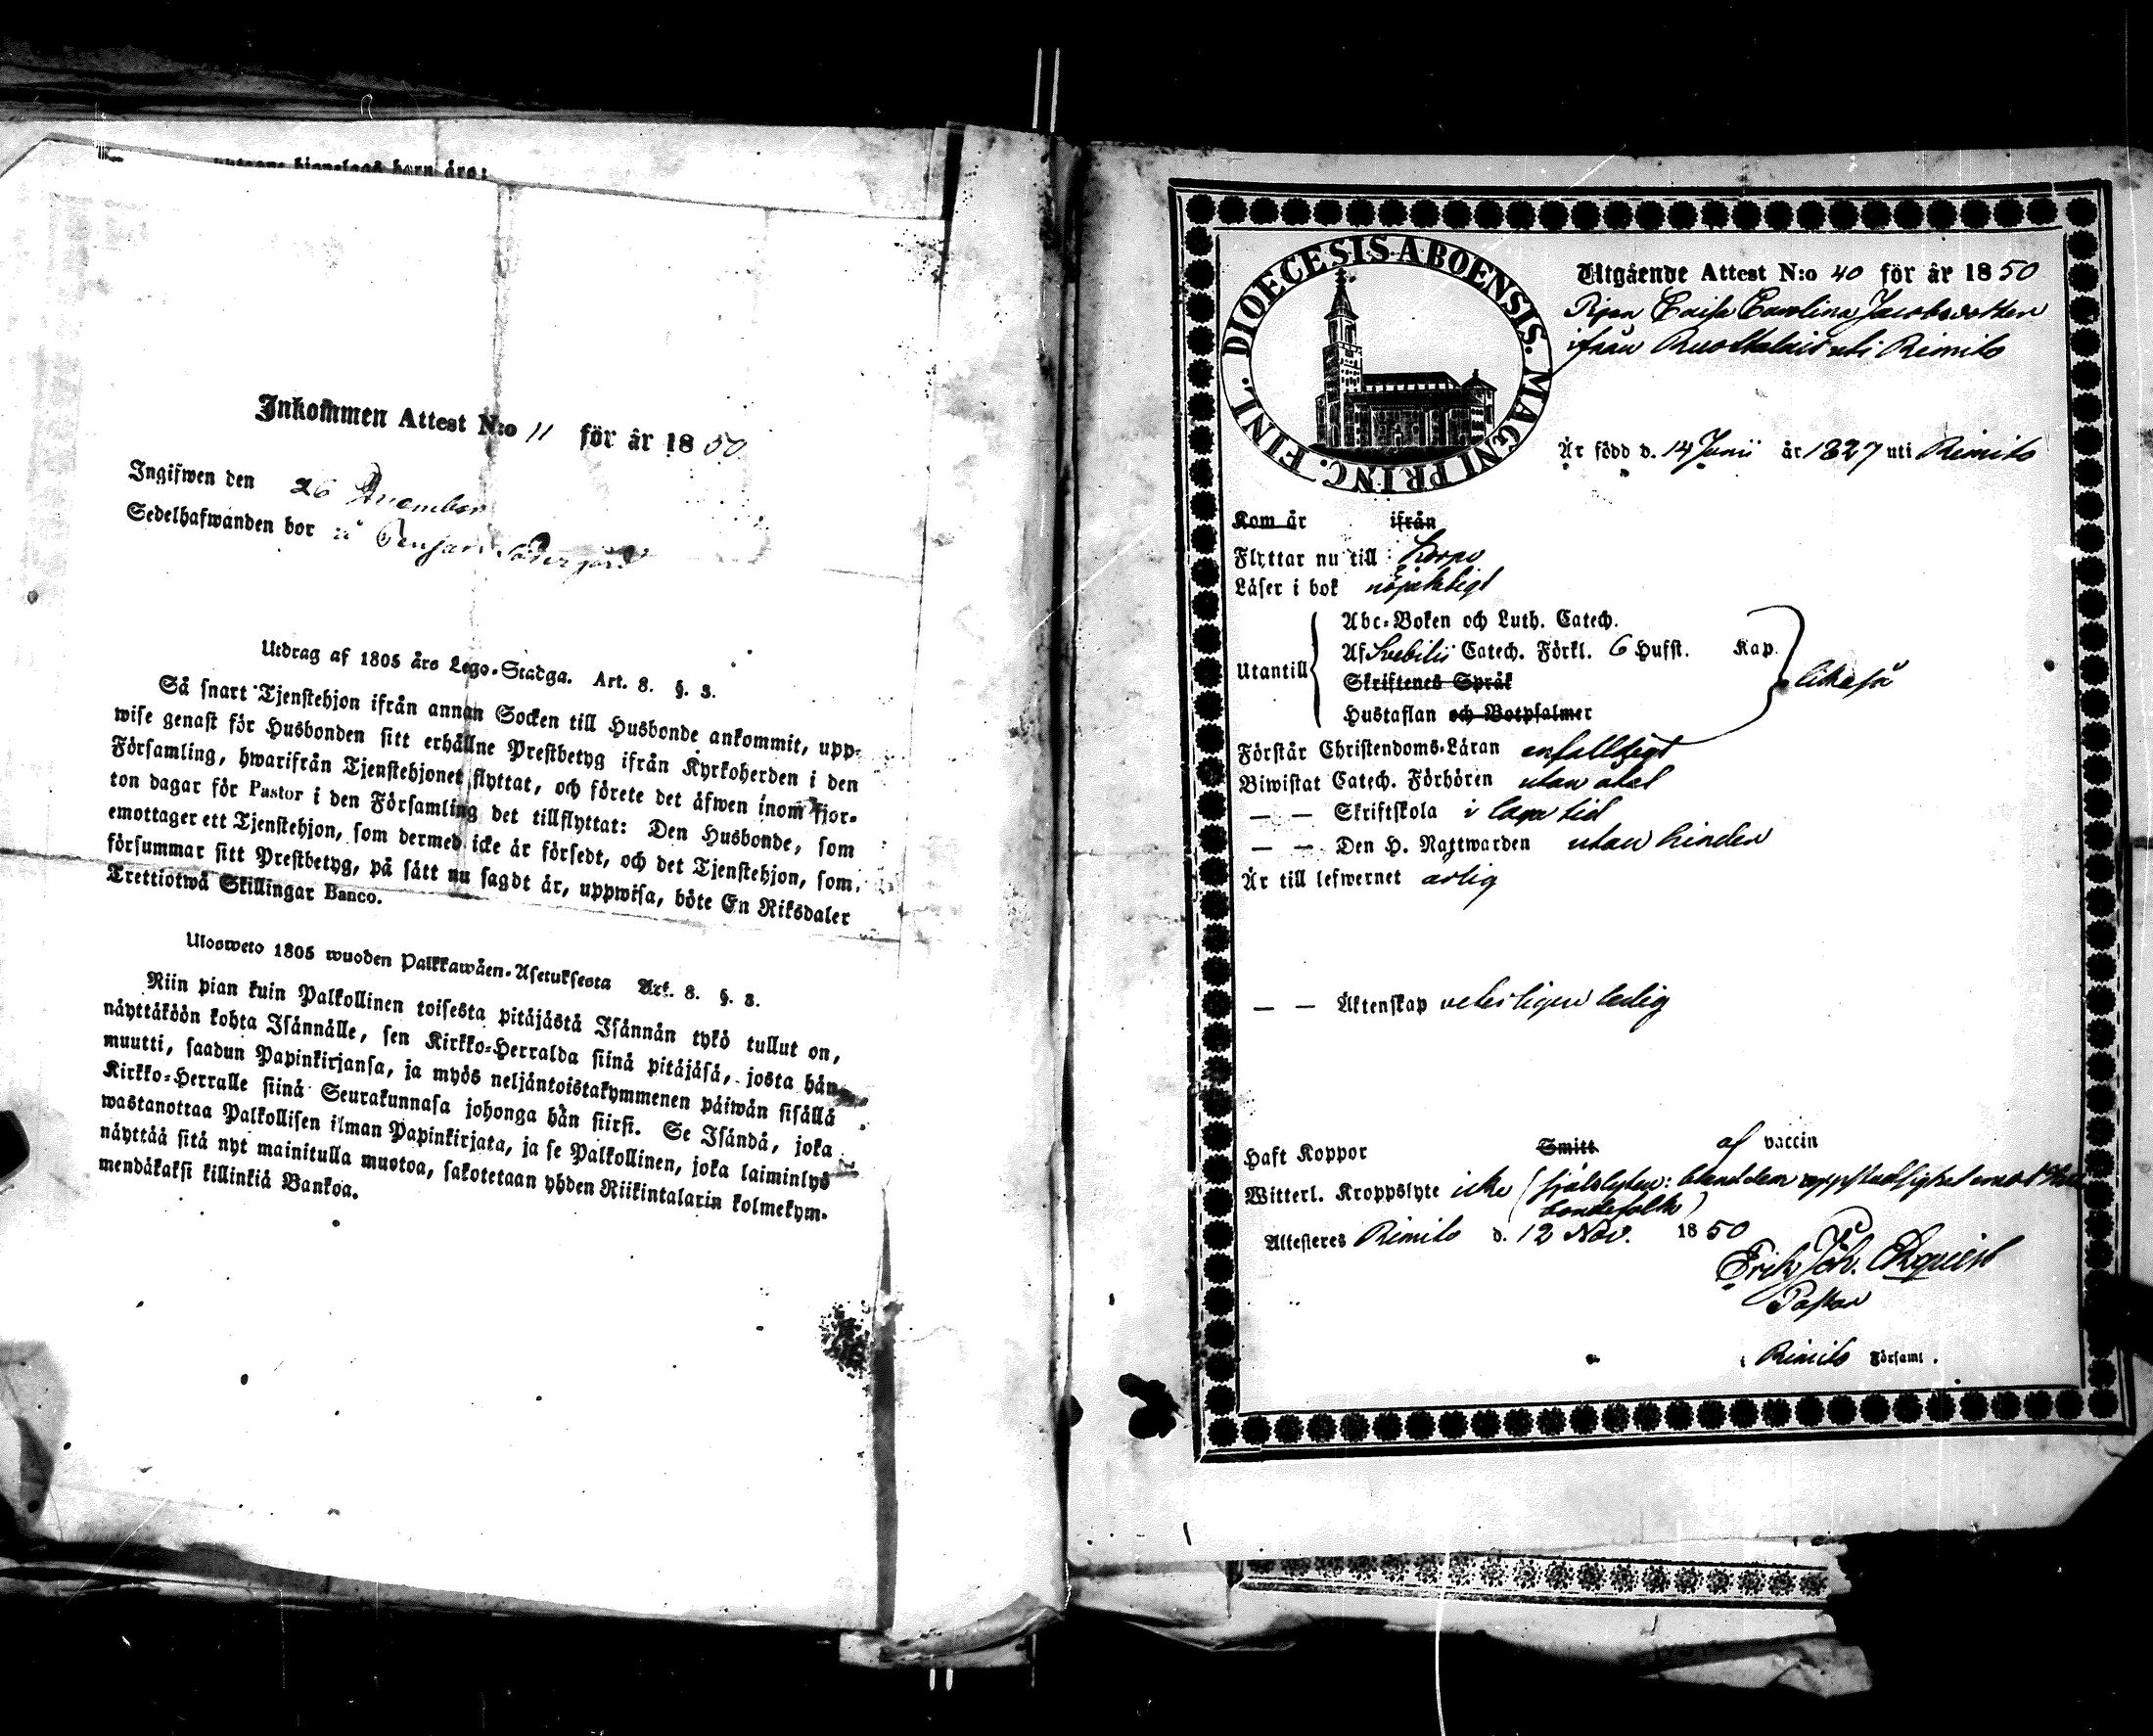 hjonslags barn äro:
Inkommen Attest N:o 11 för år 1850
Ingifwen den 26 December
Sedelhafwanden bor
Utdrag af 1805 års Lego-Stadga. Art. 8. §. 3.
Så snart Tjenstehjon ifrån annan Socken till Husbonde ankommit, upp-
wise genast för Husbonden sitt erhållne Prestbetyg ifrån Kyrkoherden i den
Församling, hwarifrån Tjenstehjonet flyttat, och förete det äfwen inom fjor-
ton dagar för Pastor i den Församling det tillflyttat: Den Husbonde, som
emottager ett Tjenstehjon, som dermed icke är försedt, och det Tjenstehjon, som
försummar sitt Prestbetyg, på sätt nu sagdt är, uppwisa, böte En Riksdaler
Trettiotwå Skillingar Banco.
Ulosweto 1805 wuoden Palkkawäen-Asetuksesta Art. 8. §. 3.
Niin pian kuin Palkollinen toisesta pitäjästä Isännän tykö tullut on,
näyttäköön kohta Isännälle, sen Kirkko-Herralda siinä pitäjäsä, josta hän
muutti, saadun Papinkirjansa, ja myös neljäntoistakymmenen päiwän sisällä
Kirkko-Herralle siinä Seurakunnasa johonga hän siirsi. Se Isändä, joka
wastanottaa Palkollisen ilman Papinkirjata, ja se Palkollinen, joka laiminlyö
näyttää sitä nyt mainitulla muotoa, sakotetaan yhden Riikintalarin kolmekym-
mendäkaksi killinkiä Bankoa.
DIOECESIS ABOENSIS. MAGNI PRINC. FINL.
Utgående Attest N:o 40 för år 1850
Pigan Caisa Carolina Jacobsdotter
ifrån uti Rimito
Är född d. 14 Junii år 1827 uti Rimito
Kom år ifrån
Flyttar nu till Korpo
Läser i bok nöjaktigt
Utantill
Abc-Boken och Luth. Catech.
Af Svebilii Catech. Förkl. 6 Hufst. Kap.
Skriftenes Språk
Hustaflan och Botpsalmer
likaså
Förstår Christendoms-Läran enfalldigt
Biwistat Catech. Förhören utan
— — Skriftskola i laga tid
— — Den H. Nattwarden utan hinder
Är till lefwernet ärlig
— — Äktenskap veterligen ledig
Haft Koppor Smitt af vaccin
Witterl. Kroppslyte icke (själslyten: bland dem uppstudsighet emot
bondefolk)
Attesteres Rimito d. 12 Nov. 1850
Erik Joh. Ekquist
Pastor
i Rimito Församl.